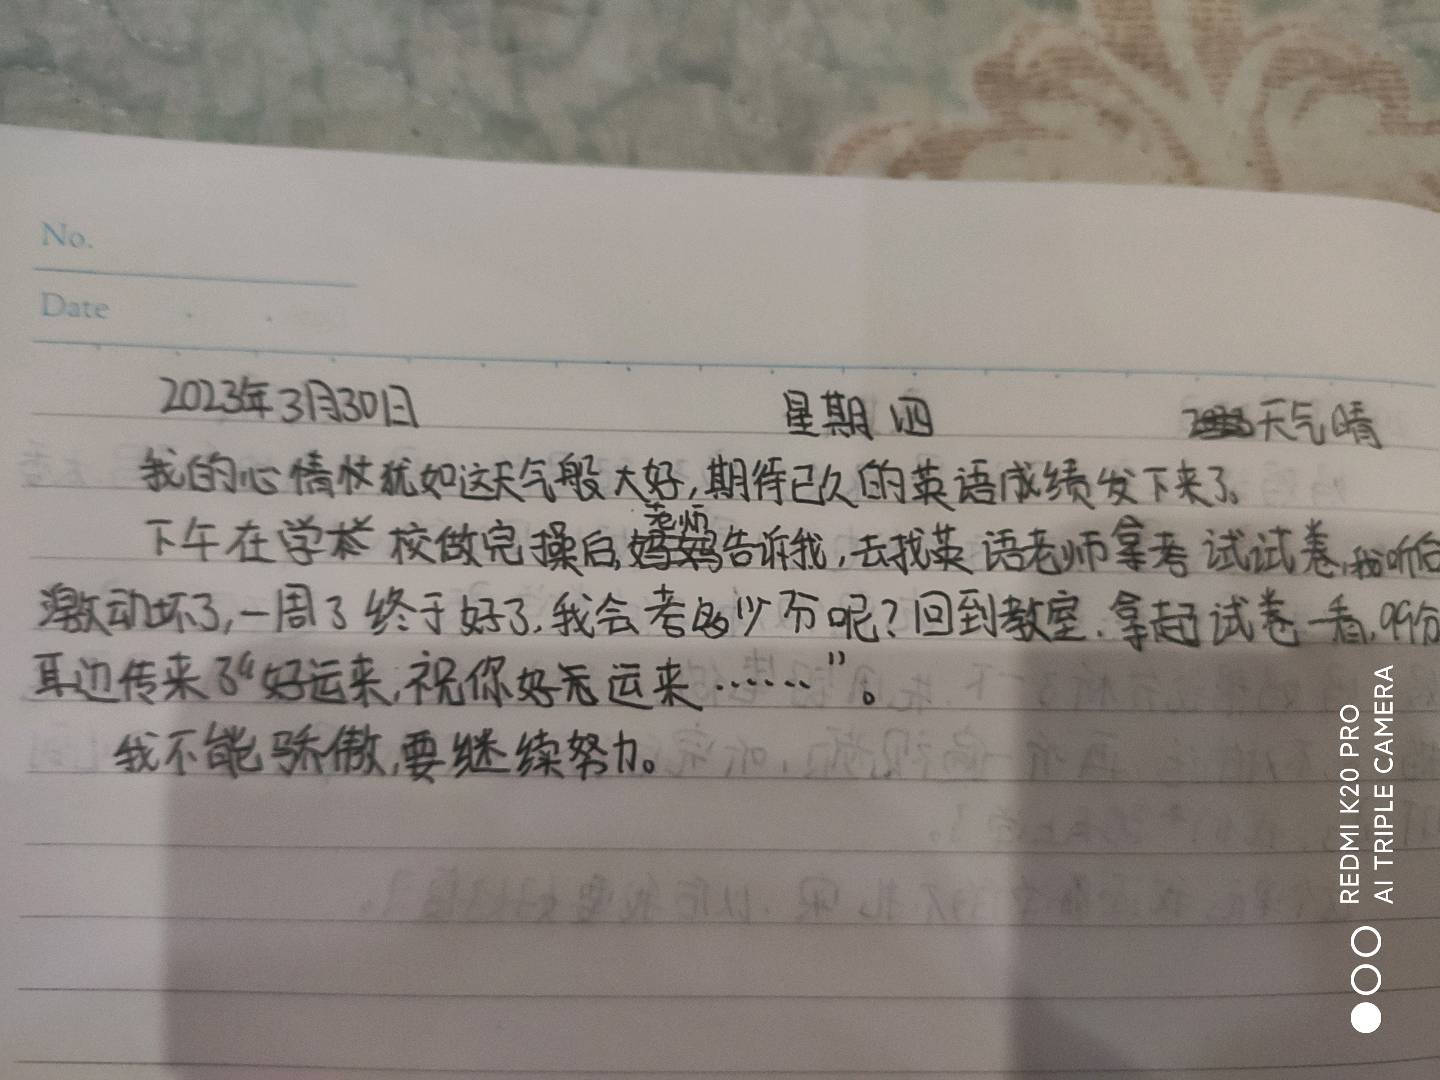 No.
Date
2023年3月30日 星期四 天气晴
我的心情犹如这天气般大好,期待已久的英语成绩发下来了。
老师
下午在学校做完操后,妈妈告诉我,去找英语老师拿考试试卷,我听后
激动坏了,一周了终于好了,我会考多少分呢?回到教室,拿起试卷一看,99分
耳边传来了“好运来,祝你好运来……”。
我不能骄傲,要继续努力。
REDMI K20 PRO
AI TRIPLE CAMERA